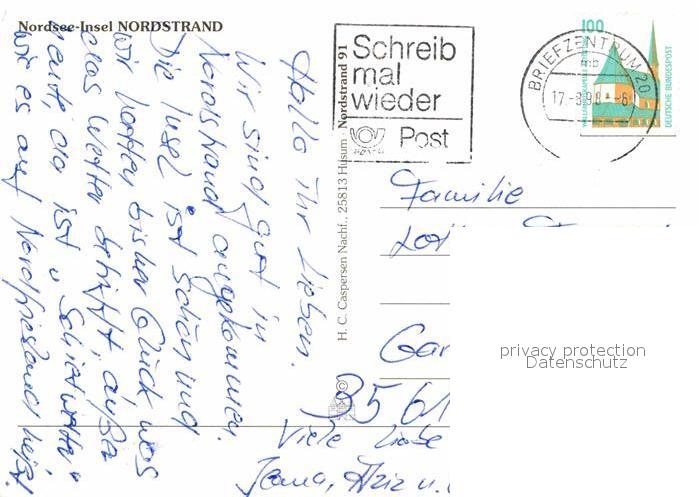 Nordsee-Insel NORDSTRAND
Hallo Ihr Lieben.
Wir sind gut in
Nordstrand angekommen.
Die Insel ist schön und
wir hatten bisher Glück was
das Wetter betrifft, außer
heute, da ist „Schietwetter"
wie es auf Nordfriesland heißt.
Viele Liebe
Jana, Aziz u.
H. C. Caspersen Nachf., 25813 Husum · Nordstrand 91
Schreib
mal
wieder
Post
BRIEFZENTRUM 20
mb
17.-8.98.-6
100
DEUTSCHE BUNDESPOST
Familie
Gar
3561
privacy protection
Datenschutz